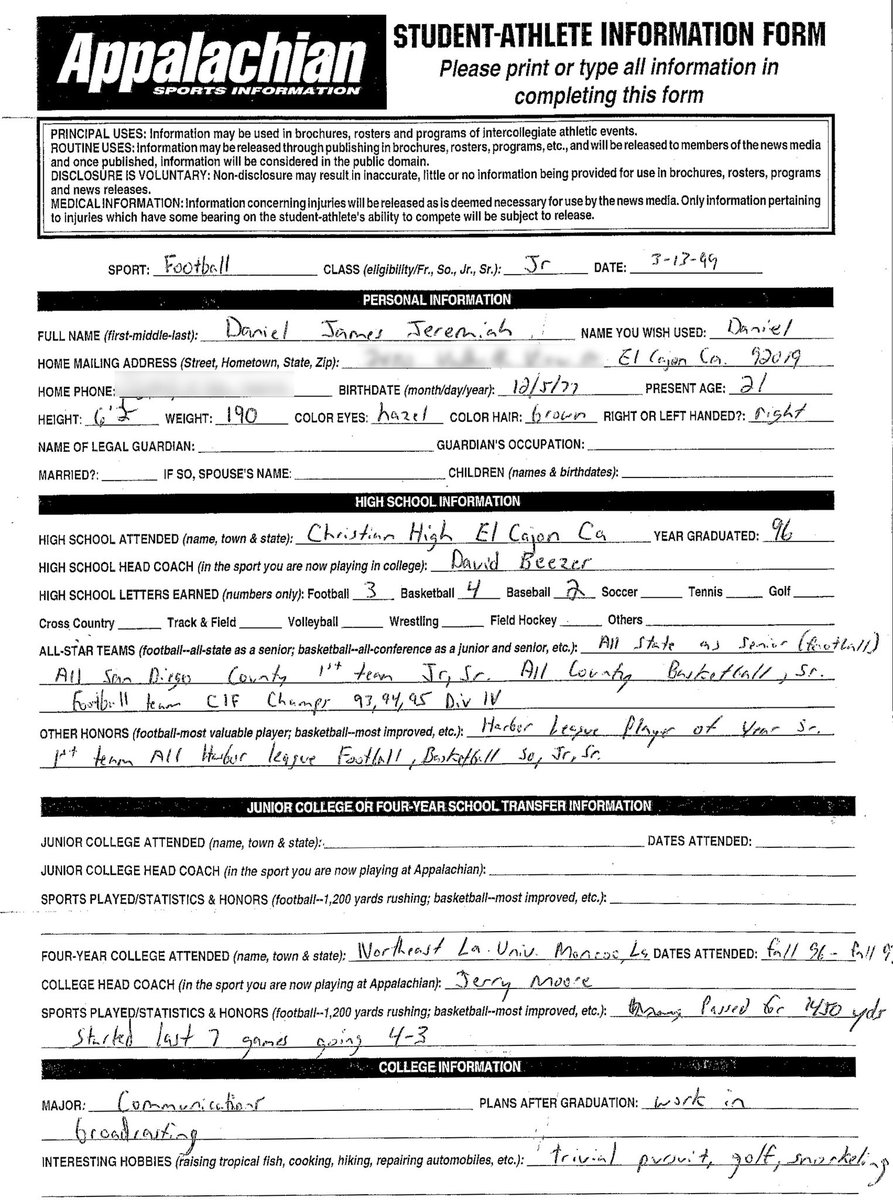 Appalachian
SPORTS INFORMATION
STUDENT-ATHLETE INFORMATION FORM
Please print or type all information in
completing this form
PRINCIPAL USES: Information may be used in brochures, rosters and programs of intercollegiate athletic events.
ROUTINE USES: Information may be released through publishing in brochures, rosters, programs, etc., and will be released to members of the news media
and once published, information will be considered in the public domain.
DISCLOSURE IS VOLUNTARY: Non-disclosure may result in inaccurate, little or no information being provided for use in brochures, rosters, programs
and news releases.
MEDICAL INFORMATION: Information concerning injuries will be released as is deemed necessary for use by the news media. Only information pertaining
to injuries which have some bearing on the student-athlete's ability to compete will be subject to release.
SPORT: Football CLASS (eligibility/Fr., So., Jr., Sr.): Jr DATE: 3-13-99
PERSONAL INFORMATION
FULL NAME (first-middle-last): Daniel James Jeremiah NAME YOU WISH USED: Daniel
HOME MAILING ADDRESS (Street, Hometown, State, Zip): El Cajon Ca. 92019
HOME PHONE: BIRTHDATE (month/day/year): 12/5/77 PRESENT AGE: 21
HEIGHT: 6'2 WEIGHT: 190 COLOR EYES: hazel COLOR HAIR: brown RIGHT OR LEFT HANDED?: right
NAME OF LEGAL GUARDIAN: GUARDIAN'S OCCUPATION:
MARRIED?: IF SO, SPOUSE'S NAME: CHILDREN (names & birthdates):
HIGH SCHOOL INFORMATION
HIGH SCHOOL ATTENDED (name, town & state): Christian High El Cajon Ca YEAR GRADUATED: 96
HIGH SCHOOL HEAD COACH (in the sport you are now playing in college): David Beezer
HIGH SCHOOL LETTERS EARNED (numbers only): Football 3 Basketball 4 Baseball 2 Soccer Tennis Golf
Cross Country Track & Field Volleyball Wrestling Field Hockey Others
ALL-STAR TEAMS (football--all-state as a senior; basketball--all-conference as a junior and senior, etc.): All State as senior (football)
All San Diego County 1st team Jr, Sr. All County Basketball, Sr.
Football team CIF Champs 93,94,95 Div IV
OTHER HONORS (football-most valuable player; basketball--most improved, etc.): Harbor League Player of Year Sr.
1st team All Harbor league Football, Basketball So, Jr, Sr.
JUNIOR COLLEGE OR FOUR-YEAR SCHOOL TRANSFER INFORMATION
JUNIOR COLLEGE ATTENDED (name, town & state): DATES ATTENDED:
JUNIOR COLLEGE HEAD COACH (in the sport you are now playing at Appalachian):
SPORTS PLAYED/STATISTICS & HONORS (football--1,200 yards rushing; basketball--most improved, etc.):
FOUR-YEAR COLLEGE ATTENDED (name, town & state): Northeast La. Univ. Monroe, La DATES ATTENDED: fall 96 - fall 9
COLLEGE HEAD COACH (in the sport you are now playing at Appalachian): Jerry Moore
SPORTS PLAYED/STATISTICS & HONORS (football--1,200 yards rushing; basketball--most improved, etc.): Passed for 1450 yds
Started last 7 games going 4-3
COLLEGE INFORMATION
MAJOR: Communications PLANS AFTER GRADUATION: work in
broadcasting
INTERESTING HOBBIES (raising tropical fish, cooking, hiking, repairing automobiles, etc.): trivial pursuit, golf, snorkeling